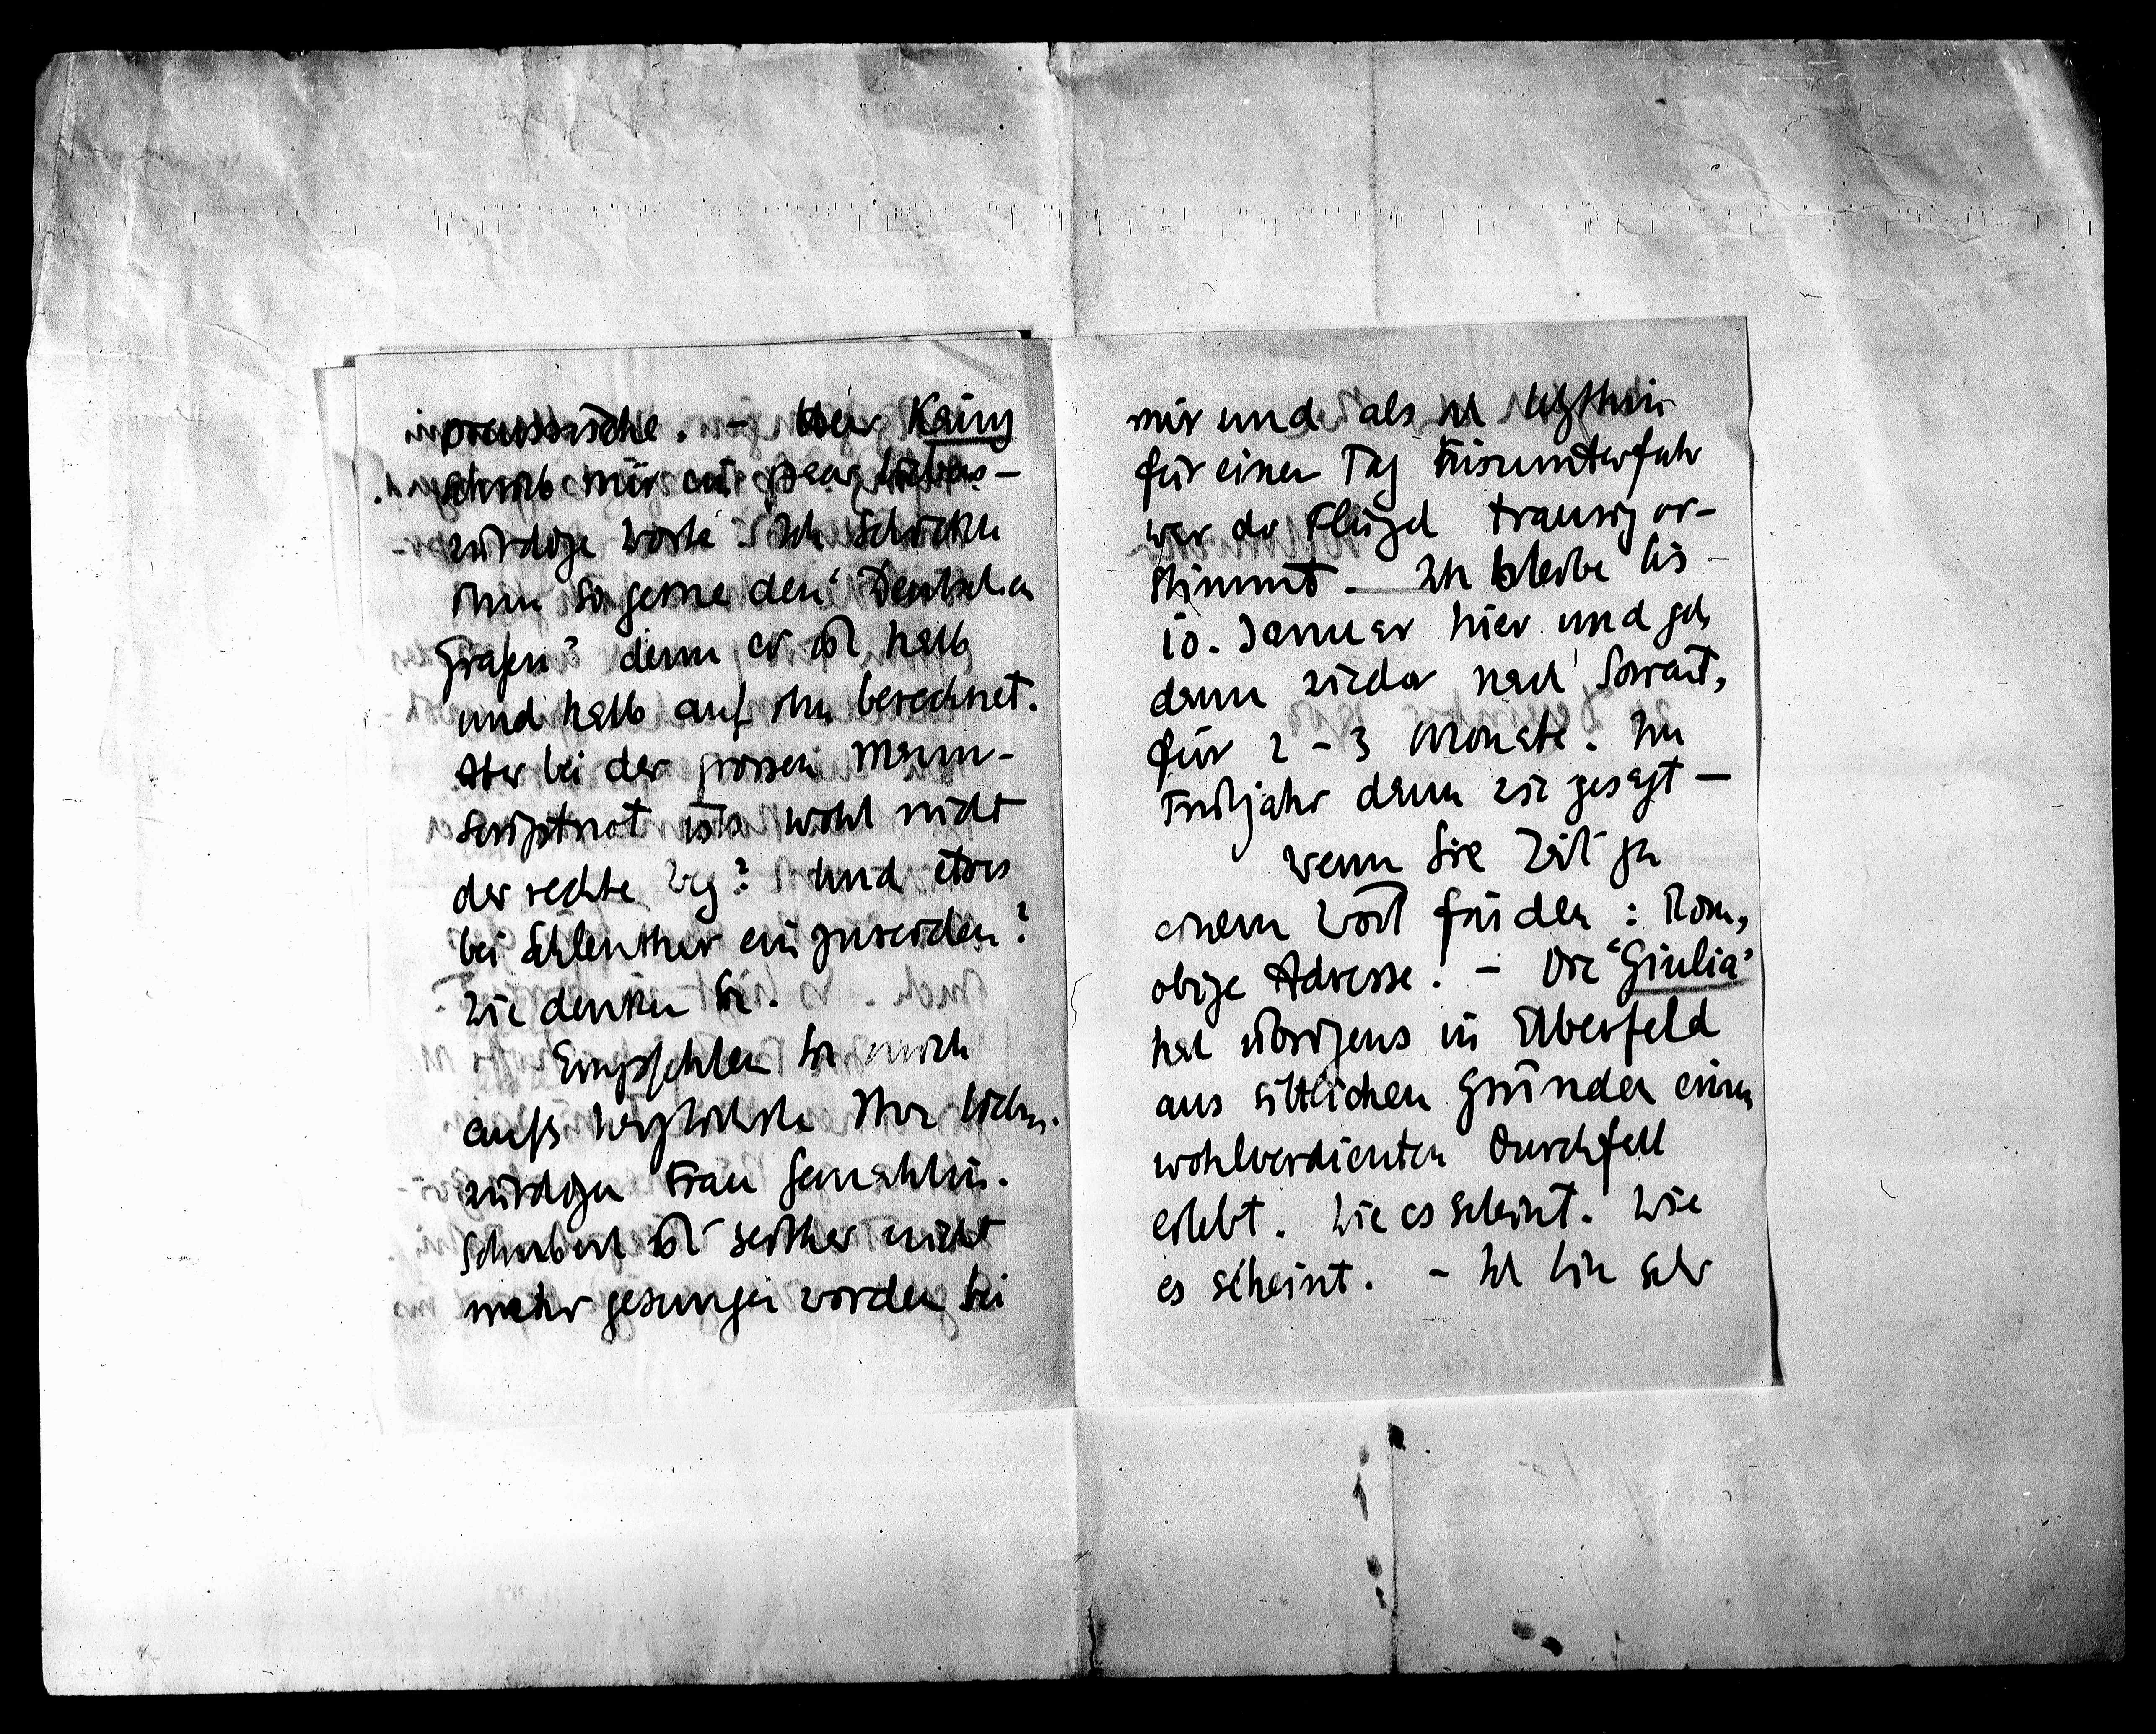 preussische. – Herr Kainz
schrieb mir ein paar liebens-
würdige Worte. Ich schicke
ihm so gerne den "Deutschen
Grafen" denn er ist halb
und halb auf ihn berechnet.
Aber bei der grossen Manu-
scriptnot ists wohl nicht
der rechte Weg? Und etwas
bei Schlenther einzureichen?
Wie denken Sie.
Empfehlen Sie mich
aufs herzlichste Ihrer liebens-
würdigen Frau Gemahlin.
Schubert ist seither nicht
mehr gesungen worden bei
mir und als ich letzthin
für einen Tag hinunterfuhr
war der Flügel traurig ver-
stimmt. – Ich bleibe bis
10. Januar hier und geh
dann wieder nach
für 2 – 3 Monate. Im
Frühjahr dann wie gesagt –
Wenn Sie Zeit zu
einem Wort finden: Rom,
obige Adresse. – Die "Giulia"
hat übrigens in Elberfeld
aus sittlichen Gründen einen
wohlverdienten Durchfall
erlebt. Wie es scheint. Wie
es scheint. – Ich bin sehr